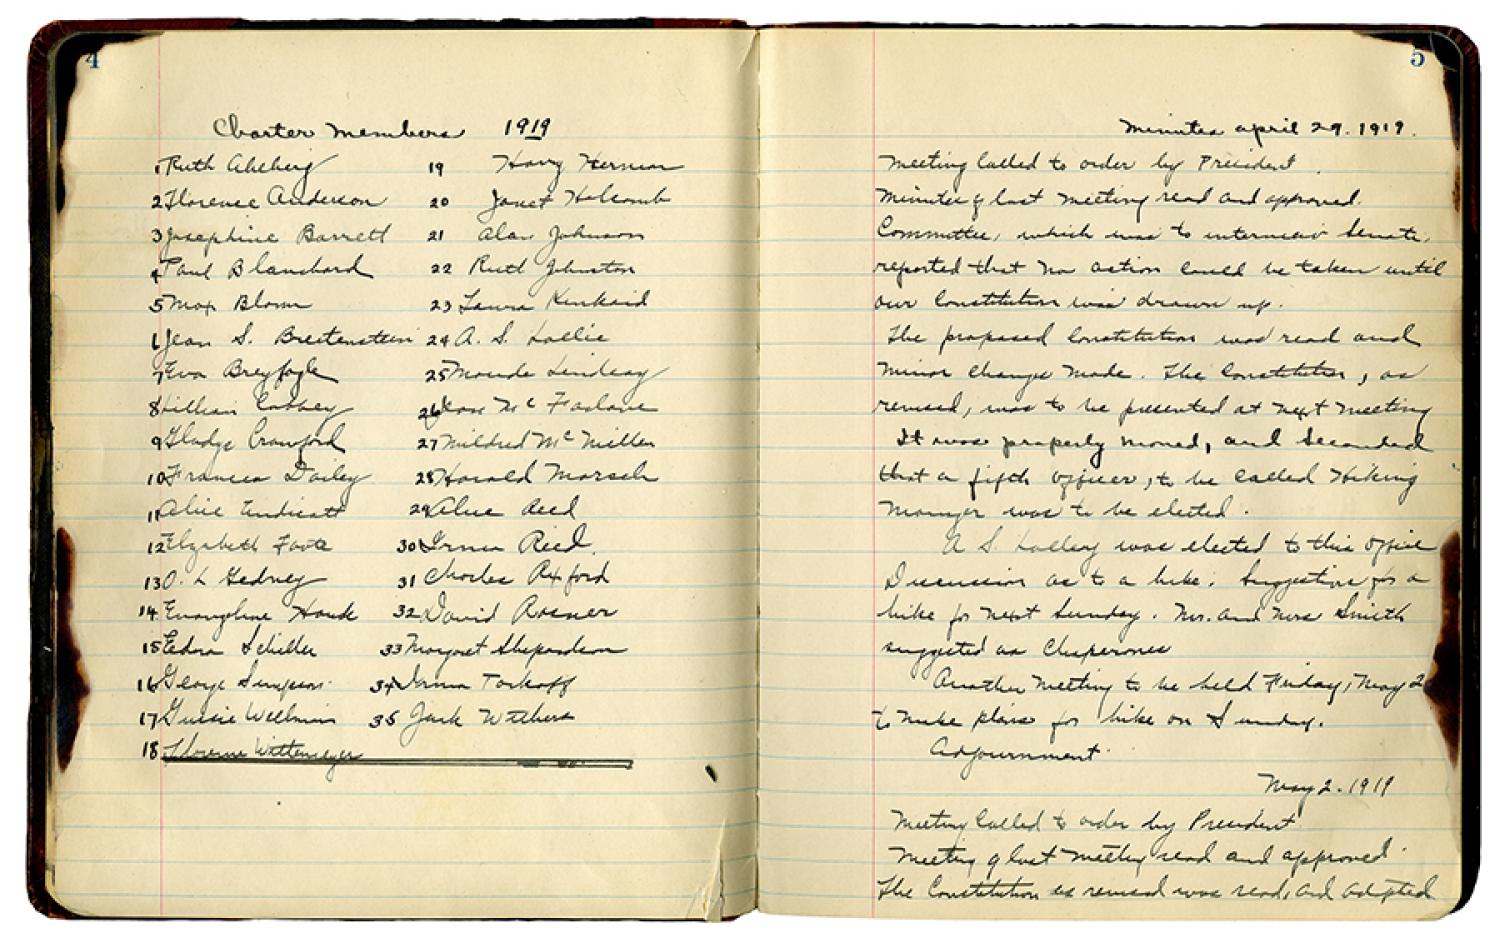 4
Charter Members 1919
1 Ruth Ahlberg
2 Florence Anderson
3 Josephine Barrett
4 Paul Blanchard
5 Max Bloom
6 Jean S. Breitenstein
7 Eva Breyfogle
8 Lillian
9 Gladys Crawford
10 Frances Dailey
11 Alice Endicott
12 Elizabeth Foote
13 O. L Gedney
14 Evangeline Houck
15 Eedora Schiller
16 George Simpson
17 Gussie Wellman
18 Florence Wittemeyer
19 Harry Herman
20 Janet Holcomb
21 Alan Johnson
22 Ruth Johnston
23 Laura Kinkaid
24 A. S.
25 Maude Lindsay
26 Mc Farlane
27 Mildred Mc Millen
28 Harold Marsch
29 Alice Reed
30 Irma Reed.
31 Charles Rixford
32 David Rosner
33 Margaret Shepardson
34 Irma Torkoff
35 Jack Withers
5
Minutes April 29. 1919.
Meeting Called to order by President.
Minutes of last meeting read and approved.
Committee, which was to interview Senate,
reported that no action could be taken until
our Constitution was drawn up.
The proposed Constitution was read and
minor change made. The Constitution, as
revised, was to be presented at next meeting
It was properly moved, and seconded
that a fifth officer, to be called Hiking
Manager was to be elected.
A S. was elected to this office
Discussion as to a hike. Suggestion for a
hike for next Sunday. Mr. and Mrs Smith
suggested as Chaperones
Another Meeting to be held Friday, May 2
to make plans for hike on Sunday.
Adjournment.
May 2. 1919
Meeting Called to order by President
Meeting of last meeting read and approved.
The Constitution as revised was read, and adopted